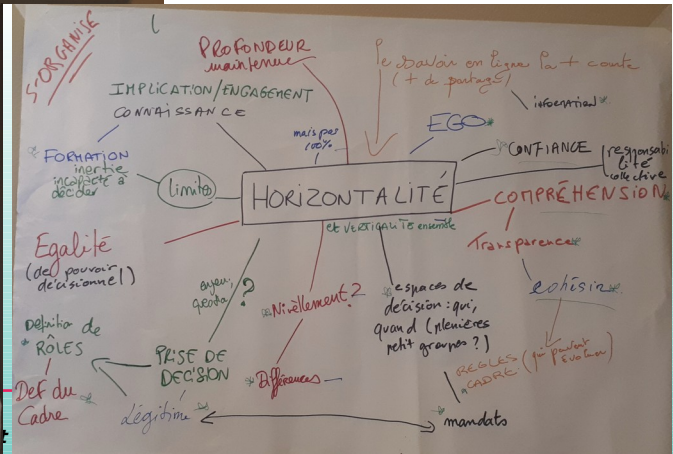 S'ORGANISE
PROFONDEUR
maintenue
le savoir en ligne la + courte
(+ de partage)
information
IMPLICATION/ENGAGEMENT
CONNAISSANCE
mais pas
100%
EGO
CONFIANCE
responsabi
lité
collective
FORMATION
inertie
incapacité à
décider
limites
HORIZONTALITÉ
et VERTICALITÉ ensemble
COMPRÉHENSION
Transparence
cohésion
Egalité
(de pouvoir
décisionnel)
?
Nivèllement?
espaces de
décision : qui,
quand (plénières
petit groupes ?)
Définition de
RÔLES
PRISE DE
DECISION
Différences
REGLES (qui peuvent
CADRE évoluer)
Def du
Cadre
Légitime
mandats
t